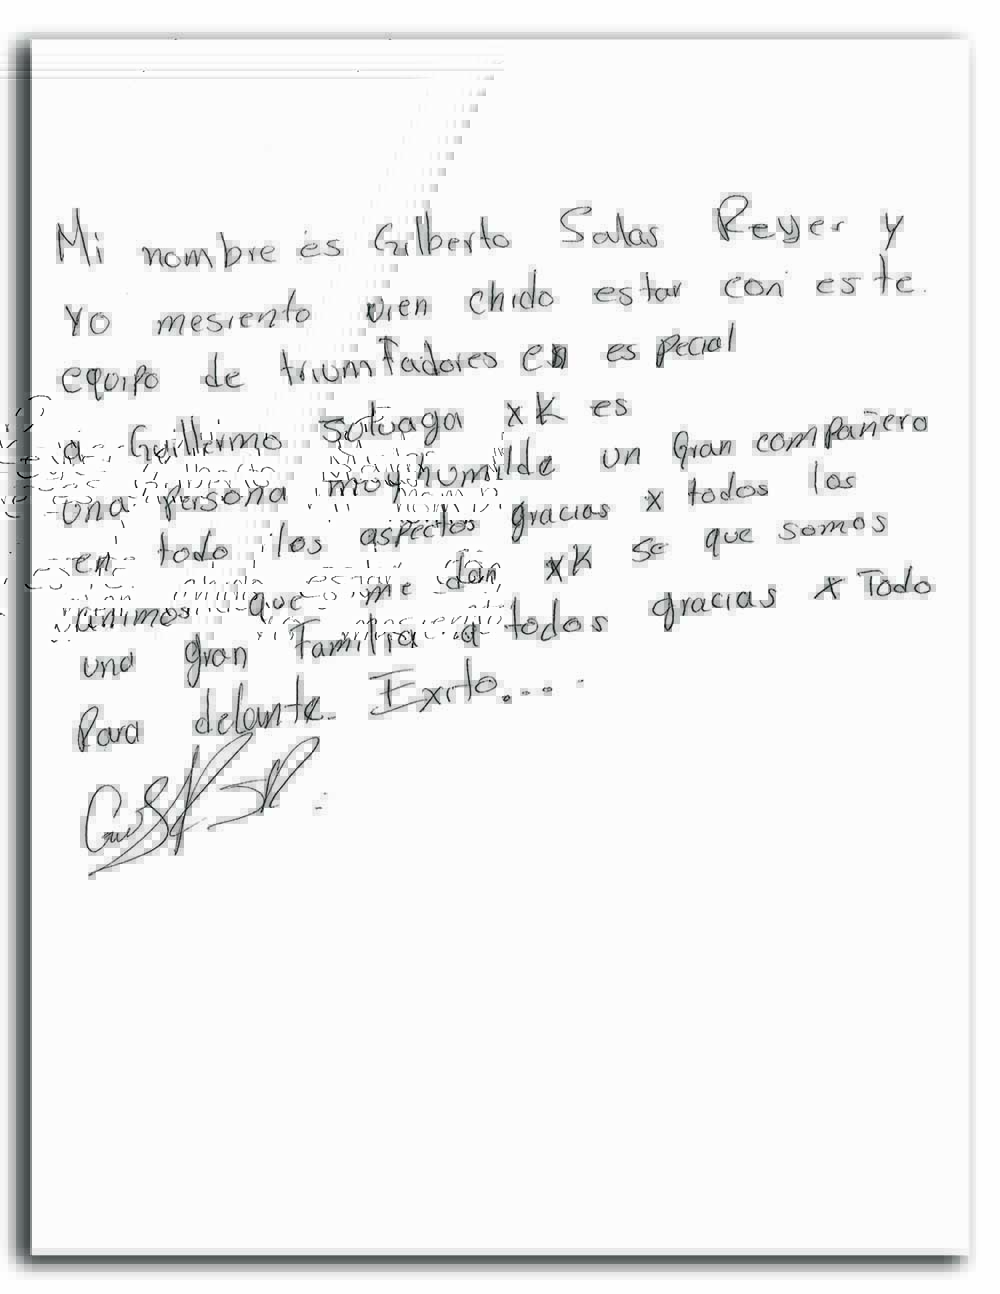 Mi nombre es Gilberto Salas Reyer y
Yo mesiento vien chido estar con este.
equipo de triumfadores en especial
a Guillermo Soluaga xk es
una persona muy humilde un Gran compañero
en todo los aspectos gracias x todos los
animos que me dan xk se que somos
una gran Familia a todos gracias x Todo
Para delante. Exito....